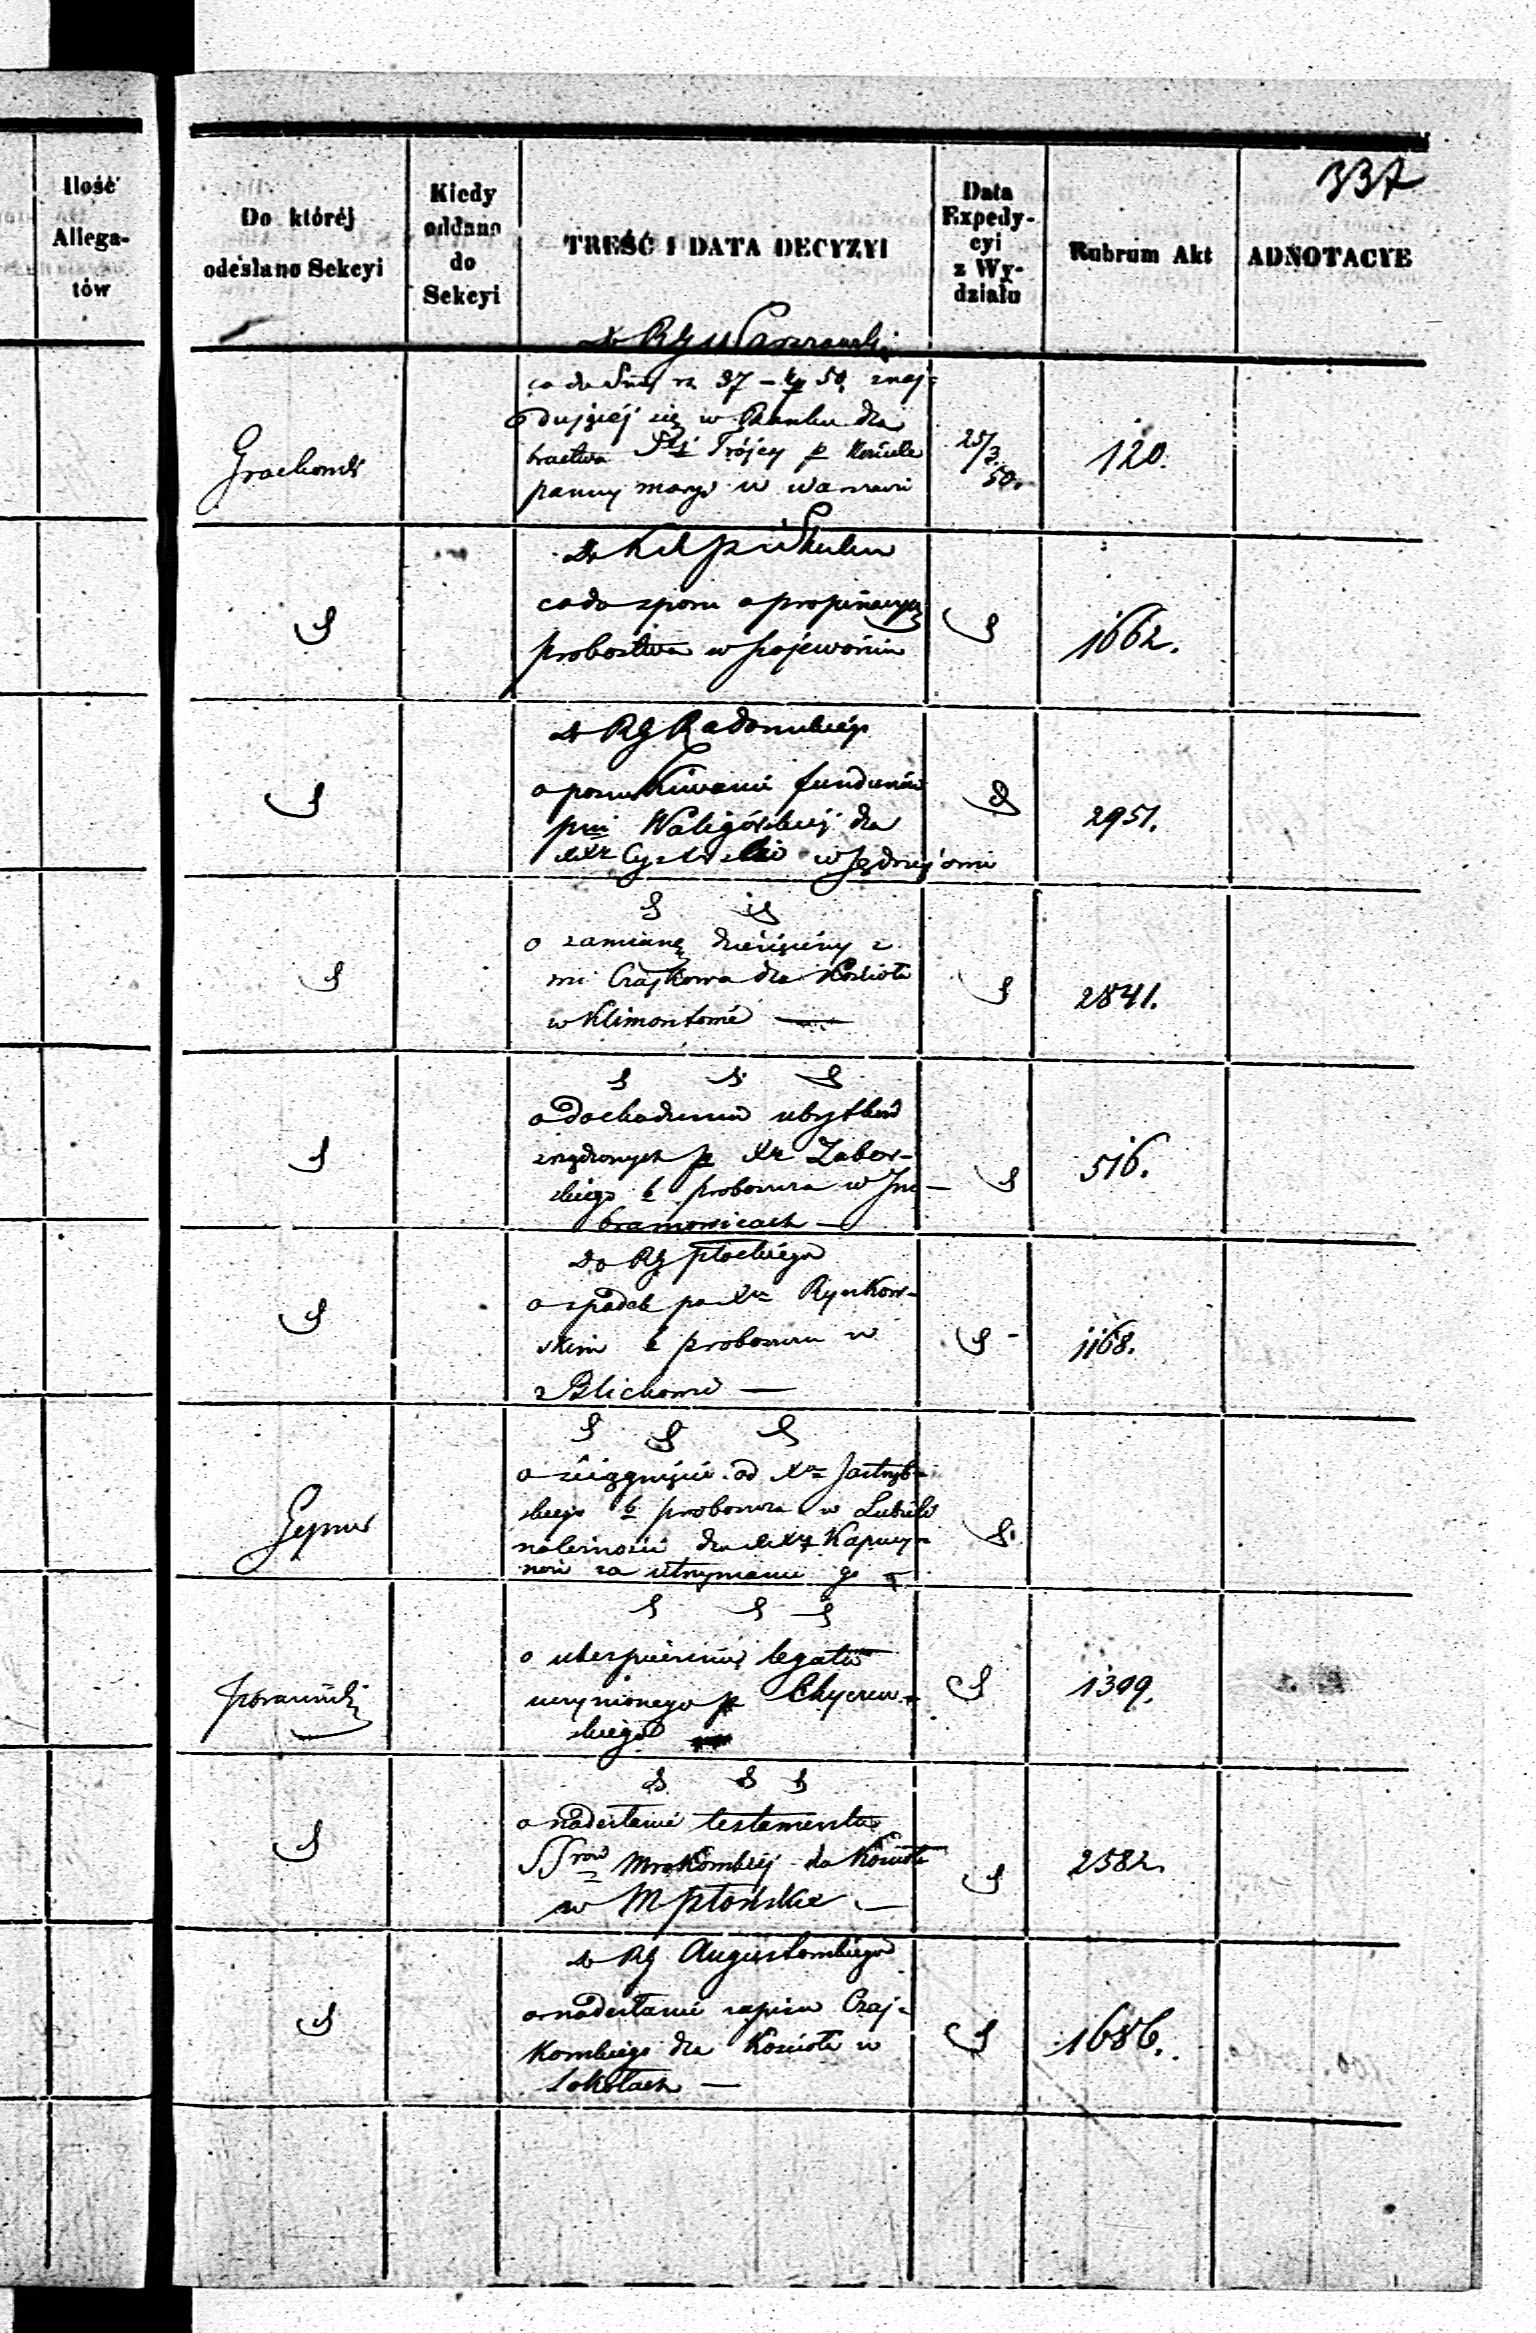 337
Ilość
Allega-
tów
Do któréj
odesłano Sekcyi
Kiedy
oddano
do
Sekcyi
TREŚĆ I DATA DECYZYI
Data
Expedy-
cyi
z Wy-
działu
Rubrum Akt
ADNOTACYE
do RG Warszawski
co do Sumy rs 37 – kp 50, znaj-
dującéj się w Banku dla
bractwa Stéj Trójcy p Kościele
panny maryi w Warszawie
25/3 50.
120.
co do sporu o propinacyą
probostwa w pojewoniu
1662.
do RG Radomskiego
o poszukiwanie funduszów
pni Waligórskiej dla
XX Cystersów w Jędrzejowie
2951.
o zamianę dziesięciny z
wsi Czajkowa dla Kościoła
w Klimontowie —
2841.
o dochodzenie ubytków
zrządzonych p Xa Zabor-
skiego b proboszcza w Im-
bramowicach —
516.
do RG płockiego
o spadek po Xu Rynkow-
skim b proboszczu w
Blichowie —
1168.
o ściągnięcie od Xa Jastrzęb-
skiego b proboszcza w
należności dla XX Kapucy-
nów za utrzymanie go
o ubezpieczenie legatu
uczynionego p
skiego
1399.
o nadesłanie testamentu
SSrów Mrokowskiéj dla Kościoła
w M płońsku —
2582.
do RG Augustowskiego
o nadesłanie zapisu Czaj-
kowskiego dla Kościoła w
Sokołach —
1686.